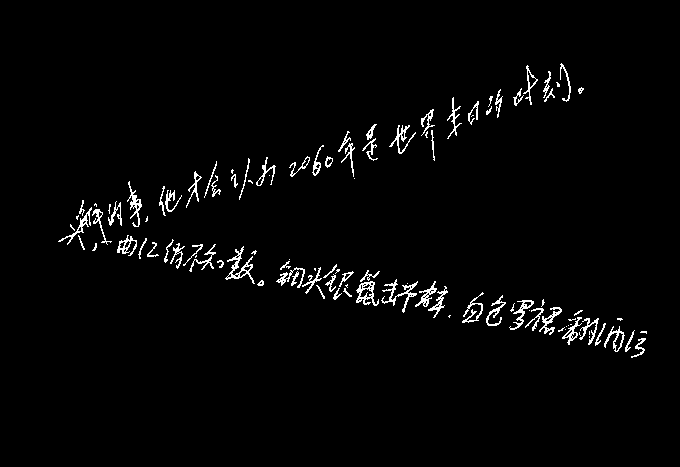 的事,他才会认为2060年是世界末日的时刻。
头,一曲红绡不知数。钿头银篦击节碎,血色罗裙翻酒污